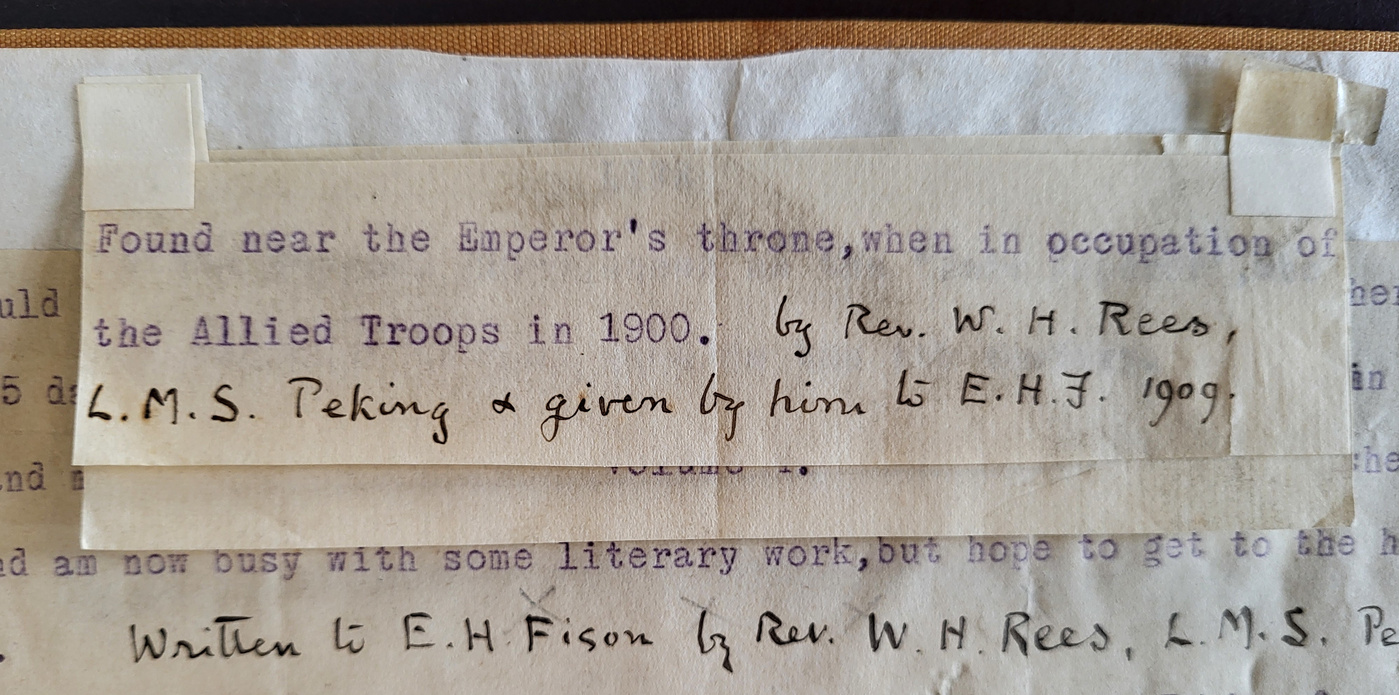 Found near the Emperor's throne,when in occupation of
the Allied Troops in 1900. by Rev. W. H. Rees,
L.M.S. Peking & given by him to E.H.F. 1909.
am now busy with some literary work,but hope to get to the
Written to E.H. Fison by Rev. W. H. Rees, L.M.S.